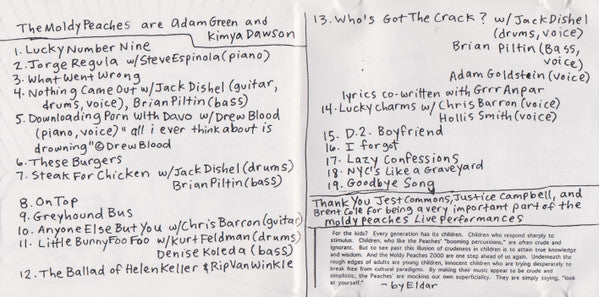 The Moldy Peaches are Adam Green and
Kimya Dawson
1. Lucky Number Nine
2. Jorge Regula w/Steve Espinola (piano)
3. What Went Wrong
4. Nothing Came Out w/Jack Dishel (guitar,
drums, voice), Brian Piltin (bass)
5. Downloading Porn with Davo w/Drew Blood
(piano, voice) "all i ever think about is
drowning" © Drew Blood
6. These Burgers
7. Steak For Chicken w/Jack Dishel (drums)
Brian Piltin (bass)
8. On Top
9. Greyhound Bus
10. Anyone Else But You w/Chris Barron (guitar)
11. Little Bunny Foo Foo w/Kurt Feldman (drums)
Denise Koleda (bass)
12. The Ballad of Helen Keller & Rip Van Winkle
13. Who's Got The Crack? w/Jack Dishel
(drums, voice)
Brian Piltin (Bass,
voice)
Adam Goldstein (voice)
lyrics co-written with Grrr Anpar
14. Lucky charms w/ Chris Barron (voice)
Hollis Smith (voice)
15. D.2. Boyfriend
16. I forgot
17. Lazy Confessions
18. NYC's Like a Graveyard
19. Goodbye Song
Thank You Jest Commons, Justice Campbell, and
Brent Cole for being a very important part of the
moldy peaches Live Performances
For the kids? Every generation has its children. Children who respond sharply to
stimulus. Children, who like the Peaches' "booming percussions," are often crude and
ignorant. But to see past this illusion of crudeness in children is to attain true knowledge
and wisdom. And the Moldy Peaches 2000 are one step ahead of us again. Underneath the
rough edges of adults are young children, innocent children who are trying desperately to
break free from cultural paradigms. By making their music appear to be crude and
simplistic, the Peaches' are mocking our own superficiality. They are simply saying, "look
at yourself."
- by Eldar